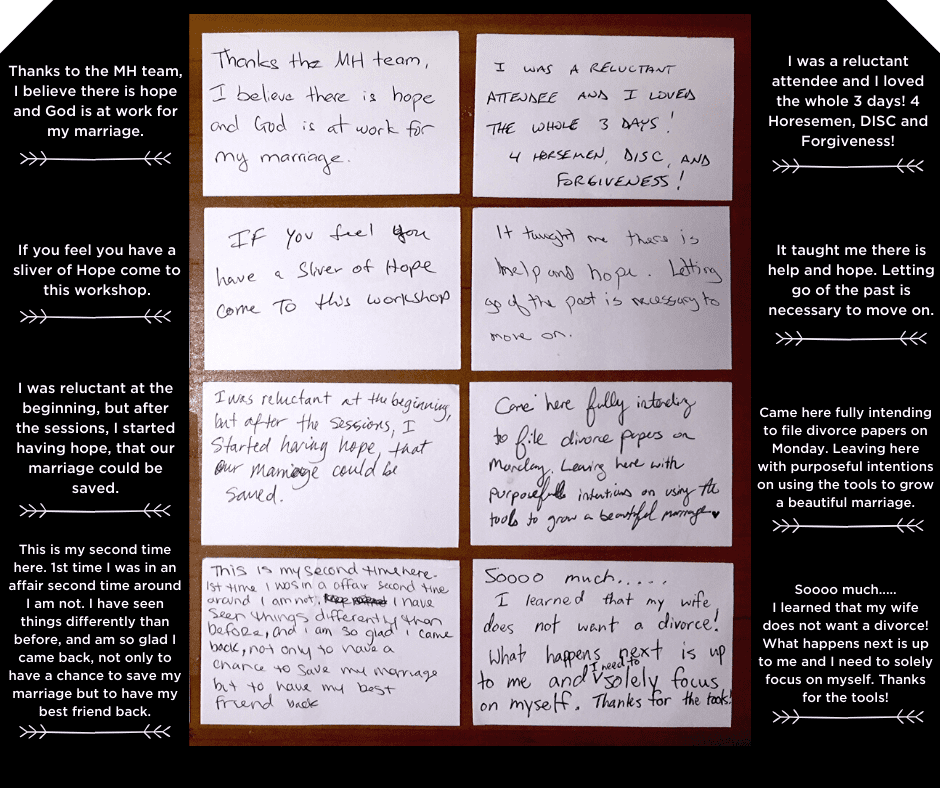 Thanks to the MH team,
I believe there is hope
and God is at work for
my marriage.
Thanks the MH team,
I believe there is hope
and God is at work for
my marriage.
I WAS A RELUCTANT
ATTENDEE AND I LOVED
THE WHOLE 3 DAYS!
4 HORSEMEN, DISC, AND
FORGIVENESS!
I was a reluctant
attendee and I loved
the whole 3 days! 4
Horesemen, DISC and
Forgiveness!
If you feel you have a
sliver of Hope come to
this workshop.
IF You feel you
have a Sliver of Hope
come To this workshop
It taught me there is
help and hope. Letting
go of the past is necessary to
move on.
It taught me there is
help and hope. Letting
go of the past is
necessary to move on.
I was reluctant at the
beginning, but after
the sessions, I started
having hope, that our
marriage could be
saved.
I was reluctant at the beginning,
but after the sessions, I
Started having hope, that
Our marriage could be
saved.
Came here fully intending
to file divorce papers on
Monday. Leaving here with
purposeful intentions on using the
tools to grow a beautiful marriage ♥
Came here fully intending
to file divorce papers on
Monday. Leaving here
with purposeful intentions
on using the tools to grow
a beautiful marriage.
This is my second time
here. 1st time I was in an
affair second time around
I am not. I have seen
things differently than
before, and am so glad I
came back, not only to
have a chance to save my
marriage but to have my
best friend back.
This is my second time here.
1st time I was in a affair second time
around I am not. I have
seen things differently than
before, and i am so glad i came
back, not only to have a
chance to save my marriage
but to have my best
friend back
Soooo much.....
I learned that my wife
does not want a divorce!
What happens next is up
to me and I need to solely focus
on myself. Thanks for the tools!
Soooo much.....
I learned that my wife
does not want a divorce!
What happens next is up
to me and I need to solely
focus on myself. Thanks
for the tools!